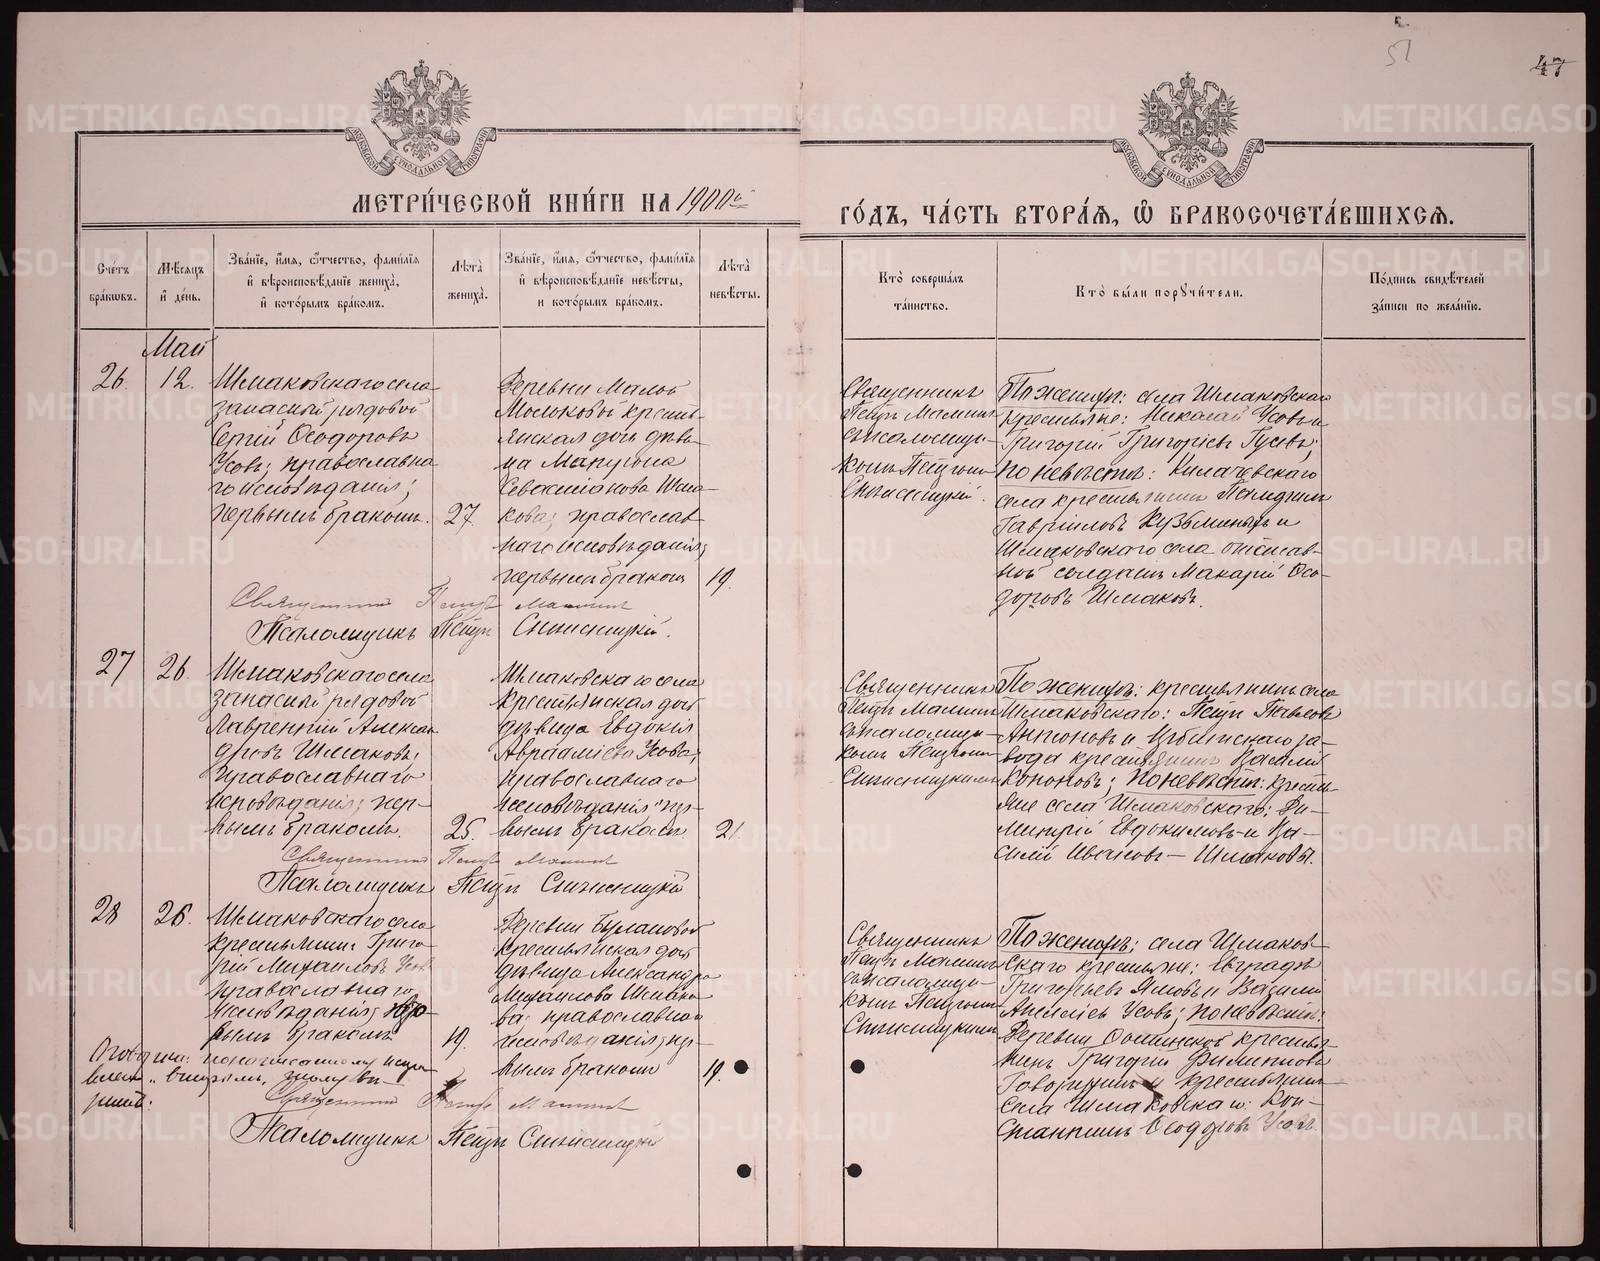 51
МЕТРИ́ЧЕСКОЙ КНИ́ГИ НА 1900й
ГО́ДЪ, ЧА́СТЬ ВТОРА́Я, Ѿ БРАКОСОЧЕТА́ВШИХСЯ.
Сче́тъ бра́ковъ.
Мѣ́сяцъ и҆ де́нь.
Зва́нїе, и҆́мя, ѻ҆́тчество, фами́лїя
и҆ вѣроисповѣ́данїе жениха̀,
и҆ кото́рымъ бра́комъ.
Лѣта̀ жениха̀.
Зва́нїе, и҆́мя, ѻ҆́тчество, фами́лїя
и҆ вѣроисповѣ́данїе невѣ́сты,
и҆ кото́рымъ бра́комъ.
Лѣта̀ невѣ́сты.
Кто̀ соверша́лъ
та́инство.
Кто̀ бы́ли порꙋчи́тели.
По́дпись свидѣ́телей
за́писи по жела́нїю.
Май
26.
12.
Шмаковскаго села
запасный рядовой
Сергій Ѳеодоровъ
Усовъ; православна
го исповѣданія;
первымъ бракомъ.
27.
Деревни Малой
Мостовой крестьянская дочь дѣви-
ца
Севастіанова Шма-
кова; православ-
наго исповѣданія;
первымъ бракомъ
19.
Священникъ
Петръ Маминъ
съ псаломщи-
комъ Петромъ
По женихѣ: села Шмаковскаго
крестьяне: Николай Усовъ и
Григорій Григоріевъ Гусевъ;
по невѣстѣ: Килачевскаго
села крестьянинъ
Гавріиловъ Кузьминыхъ и
Шмаковскаго села отстав-
ной солдатъ Макарій Ѳео-
доровъ Шмаковъ.
Священникъ Петръ Маминъ
Псаломщикъ Петръ
27
26.
Шмаковскаго села
запасный рядовой
Лаврентій Алексан
дровъ Шмаковъ;
православнаго
исповѣданія; пер-
вымъ бракомъ.
25.
Шмаковскаго села
крестьянская дочь
дѣвица Евдокія
Авраамієва Усова;
православнаго
исповѣданія; пер-
вымъ бракомъ.
21.
Священникъ
Петръ Маминъ
съ псаломщи-
комъ Петромъ
По женихѣ: крестьянинъ села
Шмаковскаго: Петръ Павловъ
Антоновъ и Ирбитскаго за-
вода крестьянинъ Василій
Кононовъ; по невѣстѣ: крестья-
яне села Шмаковскаго: Ди-
митрій Евдокимовъ и Ва-
силій Ивановъ — Шмаковы.
Священникъ Петръ Маминъ
Псаломщикъ Петръ
28
26.
Шмаковскаго села
крестьянинъ Григо-
рій Михаиловъ Усовъ
православнаго
исповѣданія;
вымъ бракомъ
19.
Деревни Булановой
крестьянская дочь
дѣвица Александра
Михаилова Шмако-
ва; православнаго
исповѣданія; пер-
вымъ бракомъ
19.
Священникъ
Петръ Маминъ
съ псаломщи-
комъ Петромъ
По женихѣ: села Шмаков-
скаго крестьяне: Евграфъ
Григорьевъ и Василій
Алексіевъ Усовъ; по невѣстѣ:
Деревни крестья-
нинъ Григорій Филипповъ
и крестьянинъ
села Шмаковскаго: Кон-
стантинъ Ѳеодоровъ Усовъ.
Священникъ Петръ Маминъ
Псаломщикъ Петръ
METRIKI.GASO-URAL.RU